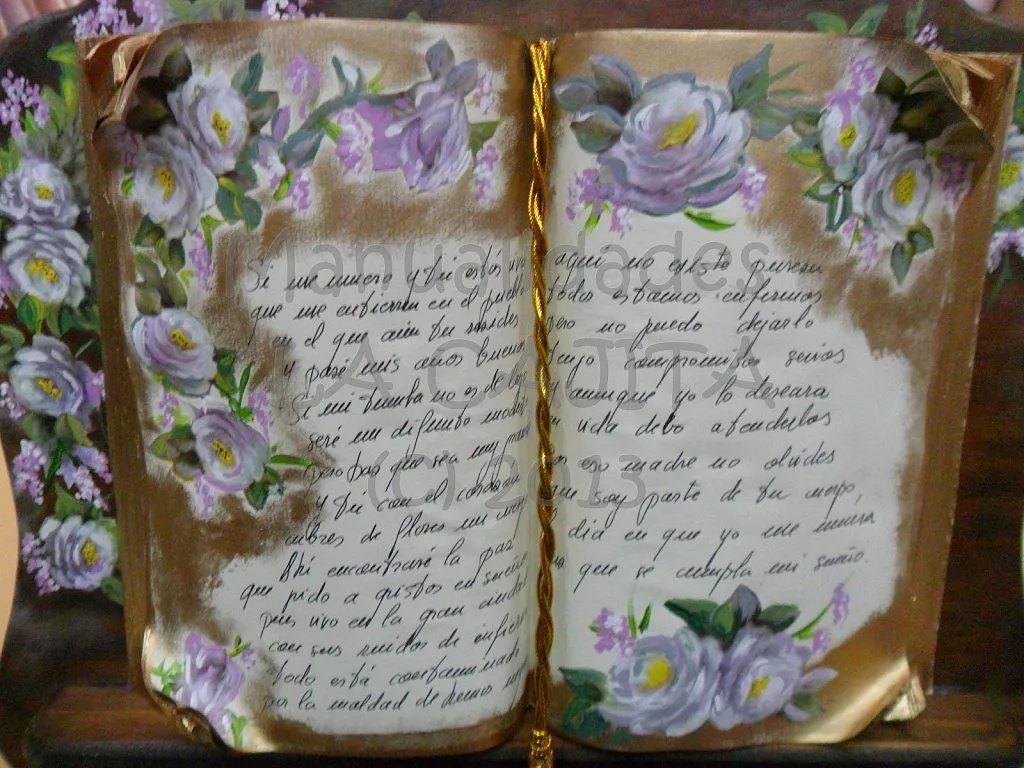 Si me muero y tú estás viva
que me entierren en el pueblo
en el que aún tu resides
y pasé mis años buenos
Si mi tumba no es de lujo
seré un difunto modesto
pero haz que sea muy
y tú con el corazón
cubres de flores mi
Ahí encontraré la paz
que pido a gritos en silencio
pues vivo en la gran ciudad
con sus ruidos de infierno
todo está contaminado
por la maldad de
aquí no existe pureza
todos estamos enfermos
pero no puedo dejarlo
tengo compromisos serios
y aunque yo lo deseara
en vida debo atenderlos
por eso madre no olvides
que soy parte de tu cuerpo,
el día en que yo me muera
haz que se cumpla mi sueño.
Manualidades
LA COJITA
(C) 2013